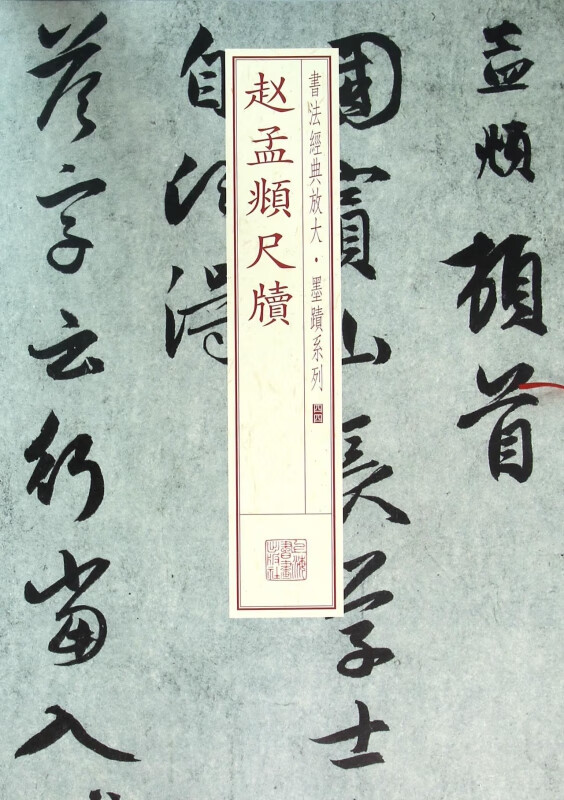 赵孟頫尺牘
書法經典放大·墨蹟系列
四四
上海書畫出版社
孟頫頓首
國寳山長學士
自
答字云行當入